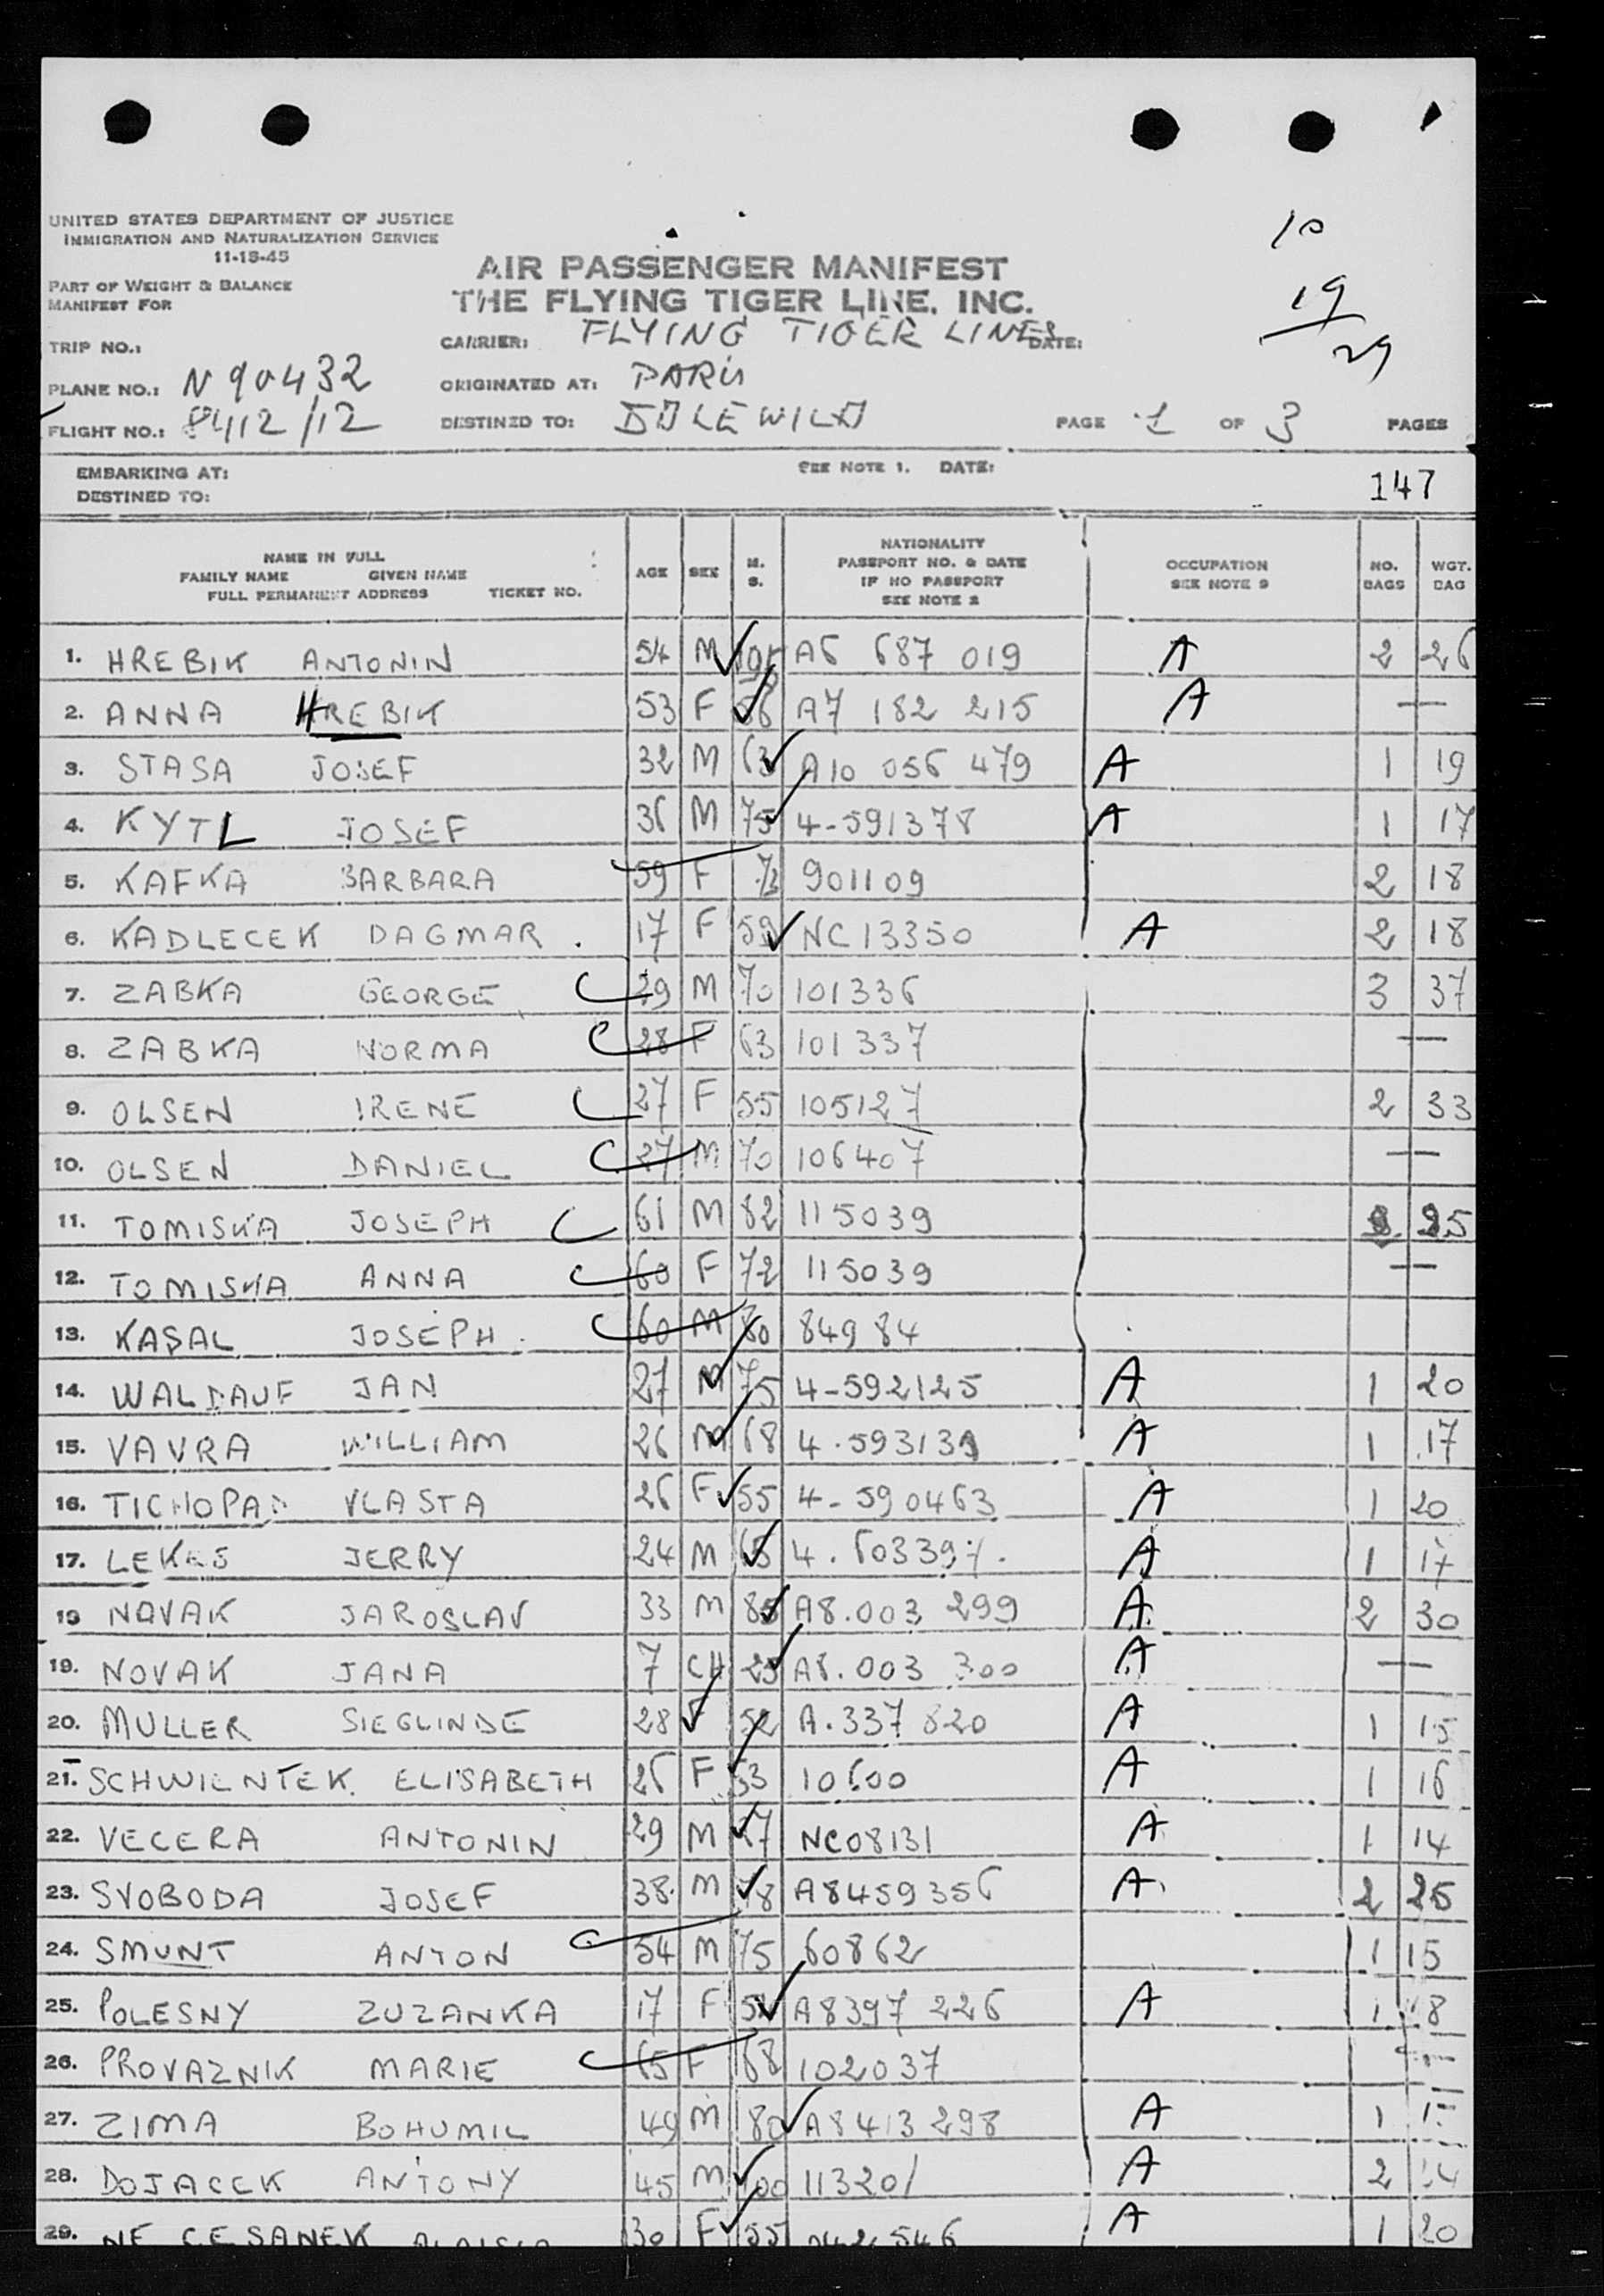 10
19
29
UNITED STATES DEPARTMENT OF JUSTICE
IMMIGRATION AND NATURALIZATION SERVICE
11-18-45
PART OF WEIGHT & BALANCE
MANIFEST FOR
AIR PASSENGER MANIFEST
THE FLYING TIGER LINE, INC.
TRIP NO.: CARRIER: FLYING TIGER LINES DATE:
PLANE NO.: N 90432 ORIGINATED AT: PARIS
FLIGHT NO.: 8412/12 DESTINED TO: IDLEWILD PAGE 1 OF 3 PAGES
EMBARKING AT: SEE NOTE 1. DATE:
DESTINED TO: 147
NAME IN FULL
FAMILY NAME GIVEN NAME
FULL PERMANENT ADDRESS TICKET NO.
AGE SEX M. S.
NATIONALITY
PASSPORT NO. & DATE
IF NO PASSPORT
SEE NOTE 2
OCCUPATION
SEE NOTE 9
NO. BAGS
WGT. BAG
1. HREBIK ANTONIN 54 M A6 687 019 A 2 26
2. ANNA HREBIK 53 F A7 182 215 A —
3. STASA JOSEF 32 M 63 A10 056 479 A 1 19
4. KYTL JOSEF 36 M 75 4-591378 A 1 17
5. KAFKA BARBARA 59 F 73 901109 2 18
6. KADLECEK DAGMAR 17 F 59 NC13350 A 2 18
7. ZABKA GEORGE C 29 M 70 101336 3 37
8. ZABKA NORMA C 28 F 63 101337 —
9. OLSEN IRENE C 27 F 55 105127 2 33
10. OLSEN DANIEL C 27 M 70 106407 —
11. TOMISKA JOSEPH C 61 M 82 115039 25
12. TOMISKA ANNA C 60 F 72 115039 —
13. KASAL JOSEPH C 60 M 80 84984
14. WALDAUF JAN 27 M 75 4-592125 A 1 20
15. VAVRA WILLIAM 26 M 68 4.593139 A 1 17
16. TICHOPAD VLASTA 26 F 55 4-590463 A 1 20
17. LEKES JERRY 24 M 65 4.603397. A 1 17
19 NOVAK JAROSLAV 33 M 85 A8.003 299 A 2 30
19. NOVAK JANA 7 CH 25 A8.003 300 A —
20. MULLER SIEGLINDE 28 F 52 A.337 820 A 1 15
21. SCHWIENTEK ELISABETH 26 F 53 10600 A 1 16
22. VECERA ANTONIN 29 M NC08131 A 1 14
23. SVOBODA JOSEF 38 M 78 A8459356 A 2 25
24. SMUNT ANTON C 54 M 75 60862 1 15
25. POLESNY ZUZANKA 17 F A8397 226 A 1 18
26. PROVAZNIK MARIE C 65 F 68 102037
27. ZIMA BOHUMIL 49 M 80 A8413 298 A 1
28. DOJACEK ANTONY 45 M 100 113201 A 2
29. NE CESANEK 30 F 55 A 1 20